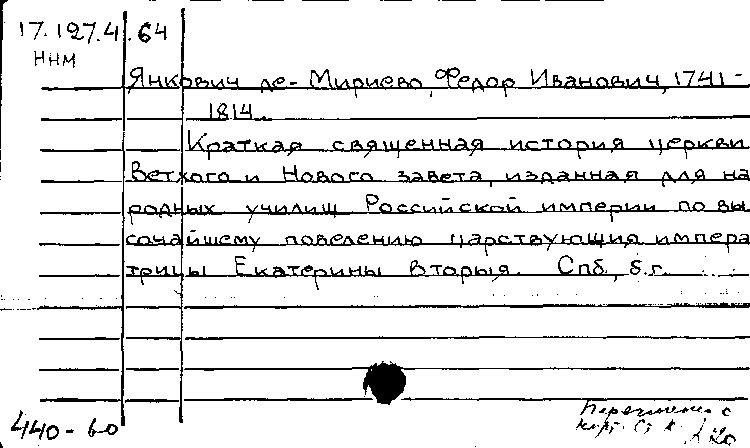 17.127.4.64
ННМ
Янкович де-Мириево, Федор Иванович, 1741-
1814.
Краткая священная история церкви
Ветхого и Нового завета, изданная для на
родных училищ Российской империи по вы
сочайшему повелению царствующия импера
трицы Екатерины вторыя. Спб., б.г.
440-60
с